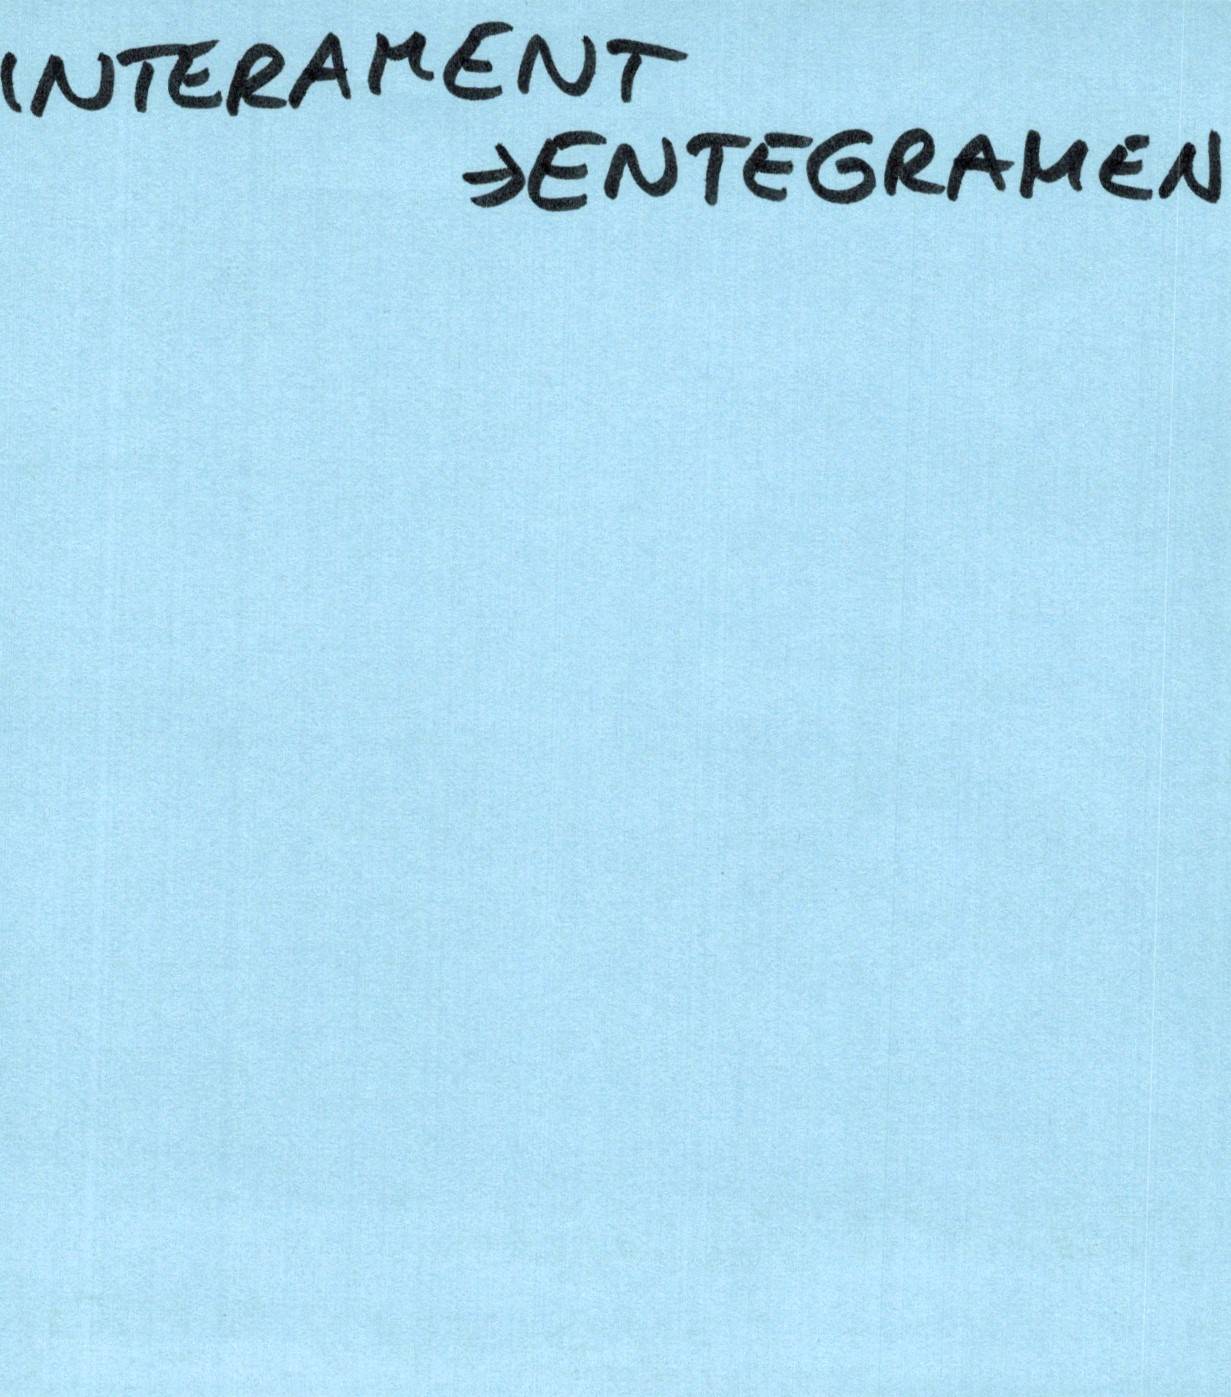 INTERAMENT
→ENTEGRAMEN